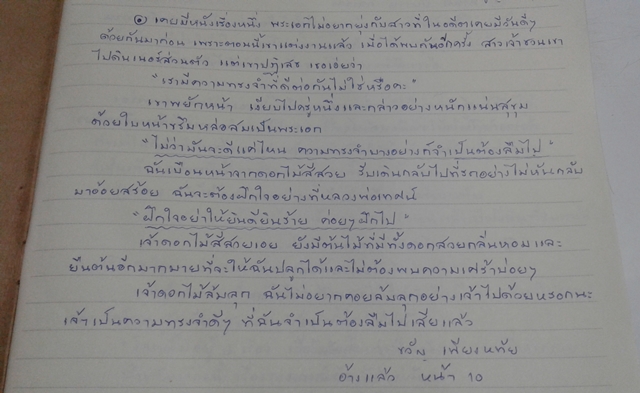 ๏ เคยมีหนังเรื่องหนึ่ง พระเอกไม่อยากยุ่งกับสาวที่ในอดีตเคยมีวันดีๆ
ด้วยกันมาก่อน เพราะตอนนี้เขาแต่งงานแล้ว เมื่อได้พบกันอีกครั้ง สาวเจ้าชวนเขา
ไปดินเนอร์ส่วนตัว แต่เขาปฏิเสธ เธอเอ่ยว่า
"เรามีความทรงจำที่ดีต่อกันไม่ใช่หรือคะ"
เขาพยักหน้า เงียบไปครู่หนึ่งและกล่าวอย่างหนักแน่นสุขุม
ด้วยใบหน้าขรึมหล่อสมเป็นพระเอก
"ไม่ว่ามันจะดีแค่ไหน ความทรงจำบางอย่างก็จำเป็นต้องลืมไป"
ฉันเบือนหน้าจากดอกไม้สีสวย รีบเดินกลับไปที่รถอย่างไม่หันกลับ
มาอ้อยสร้อย ฉันจะต้องฝึกใจอย่างที่หลวงพ่อเทศน์
"ฝึกใจอย่าให้ยินดียินร้าย ค่อยๆฝึกไป"
เจ้าดอกไม้สีสวยเอย ยังมีต้นไม้ที่มีทั้งดอกสวยกลิ่นหอมและ
ยืนต้นอีกมากมายที่จะให้ฉันปลูกได้และไม่ต้องพบความเศร้าบ่อยๆ
เจ้าดอกไม้ล้มลุก ฉันไม่อยากคอยล้มลุกอย่างเจ้าไปด้วยหรอกนะ
เจ้าเป็นความทรงจำดีๆ ที่ฉันจำเป็นต้องลืมไปเสียแล้ว
ขวัญ เพียงหทัย
อ้างแล้ว หน้า 10